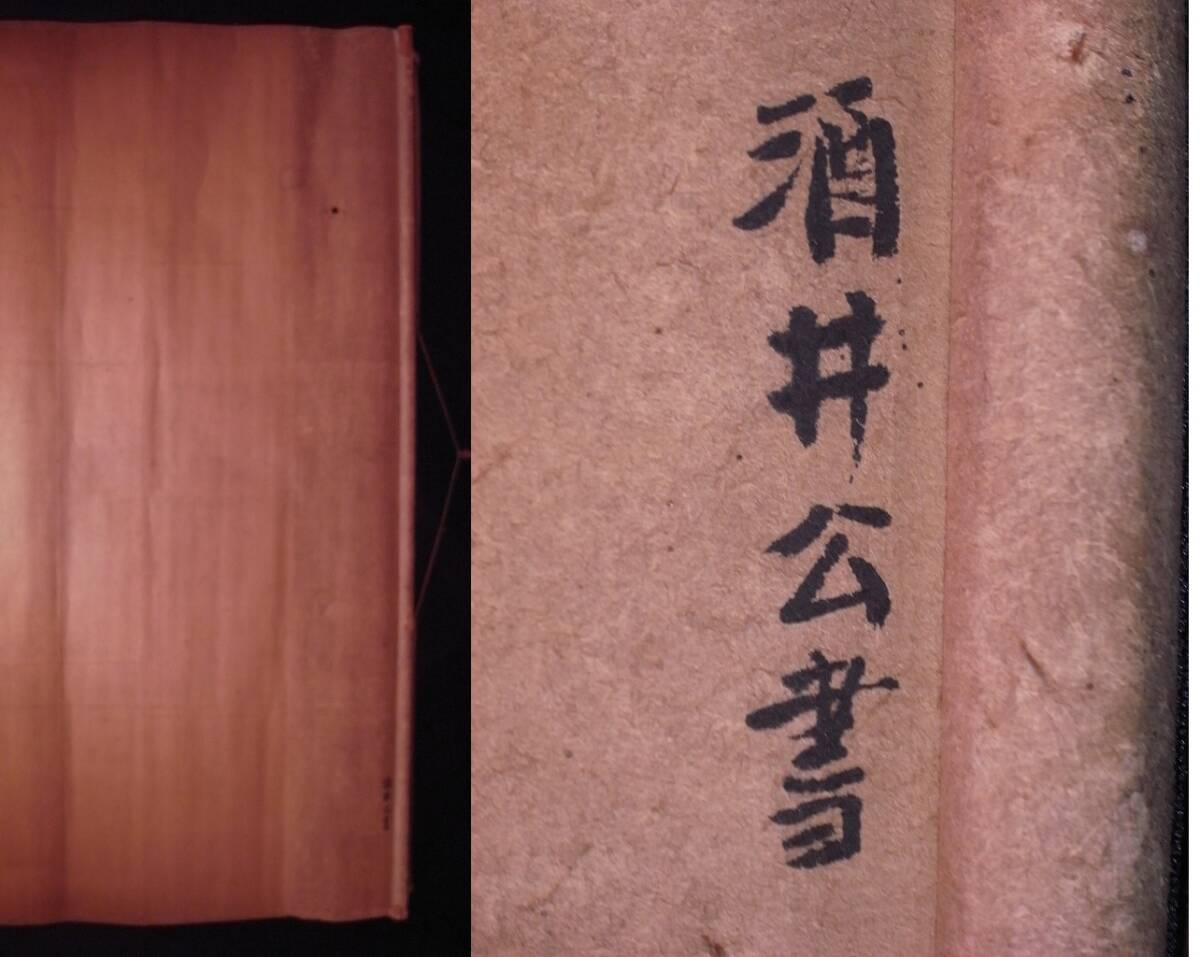 酒井公書